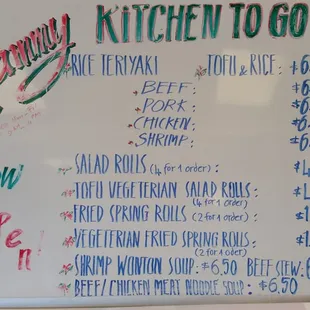 KITCHEN TO GO
RICE TERIYAKI TOFU & RICE: $6
BEEF:
PORK:
CHICKEN:
SHRIMP:
SALAD ROLLS (4 for 1 order):
TOFU VEGETERIAN SALAD ROLLS:
(4 for 1 order)
FRIED SPRING ROLLS (2 for 1 order):
VEGETERIAN FRIED SPRING ROLLS:
(2 for 1 oder)
SHRIMP WONTON SOUP: $6.50 BEEF STEW:
BEEF/CHICKEN MEAT NOODLE SOUP: $6.50